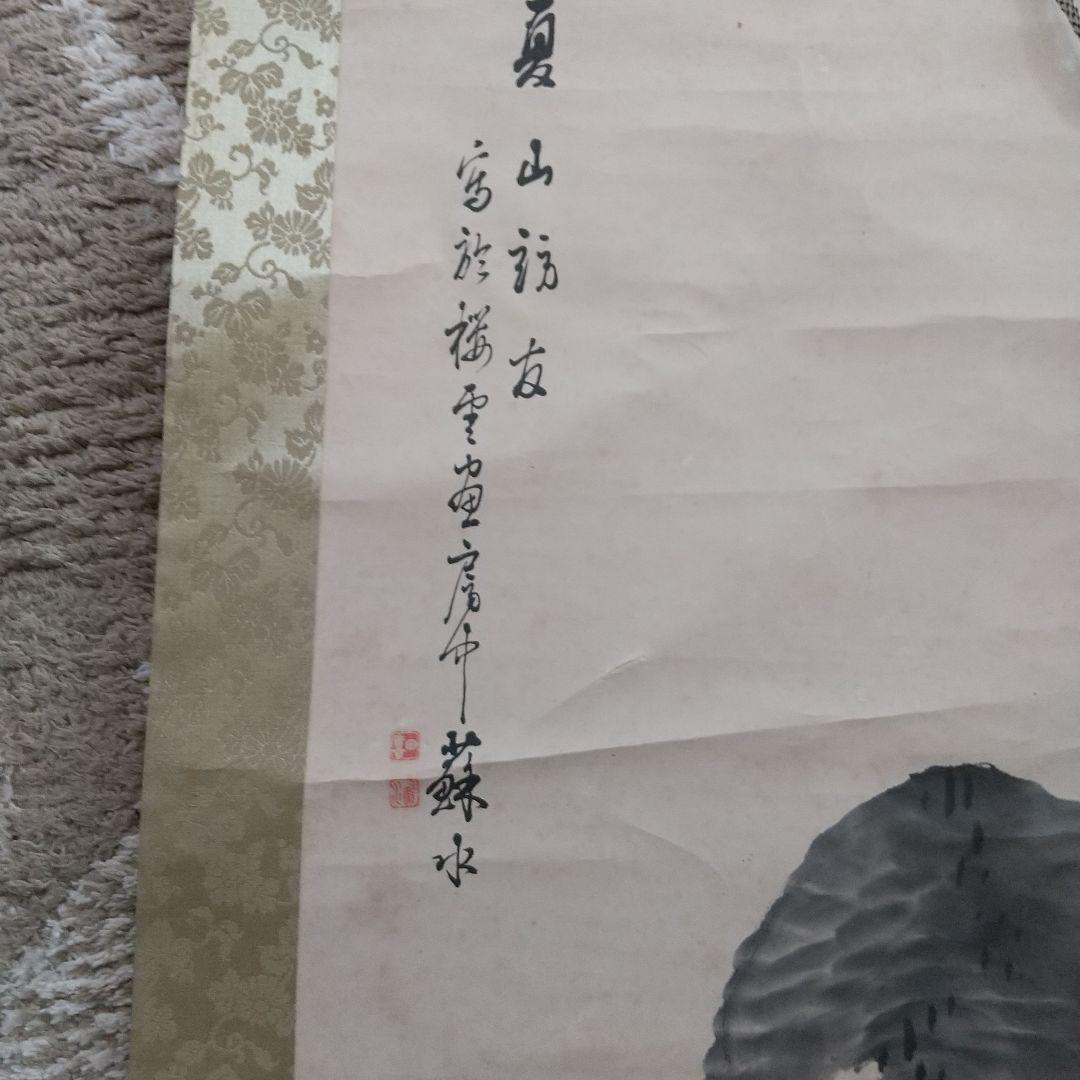 夏山訪友
寫於櫻雲畫房中蘇水